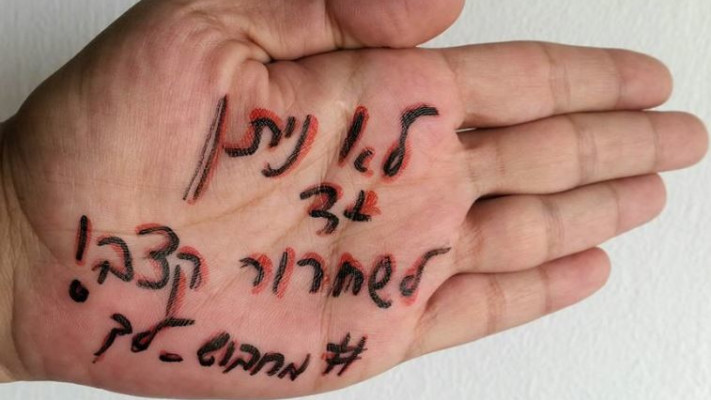 לא ניתן
יד
לשחרור קצב!
# מחבוש_לך